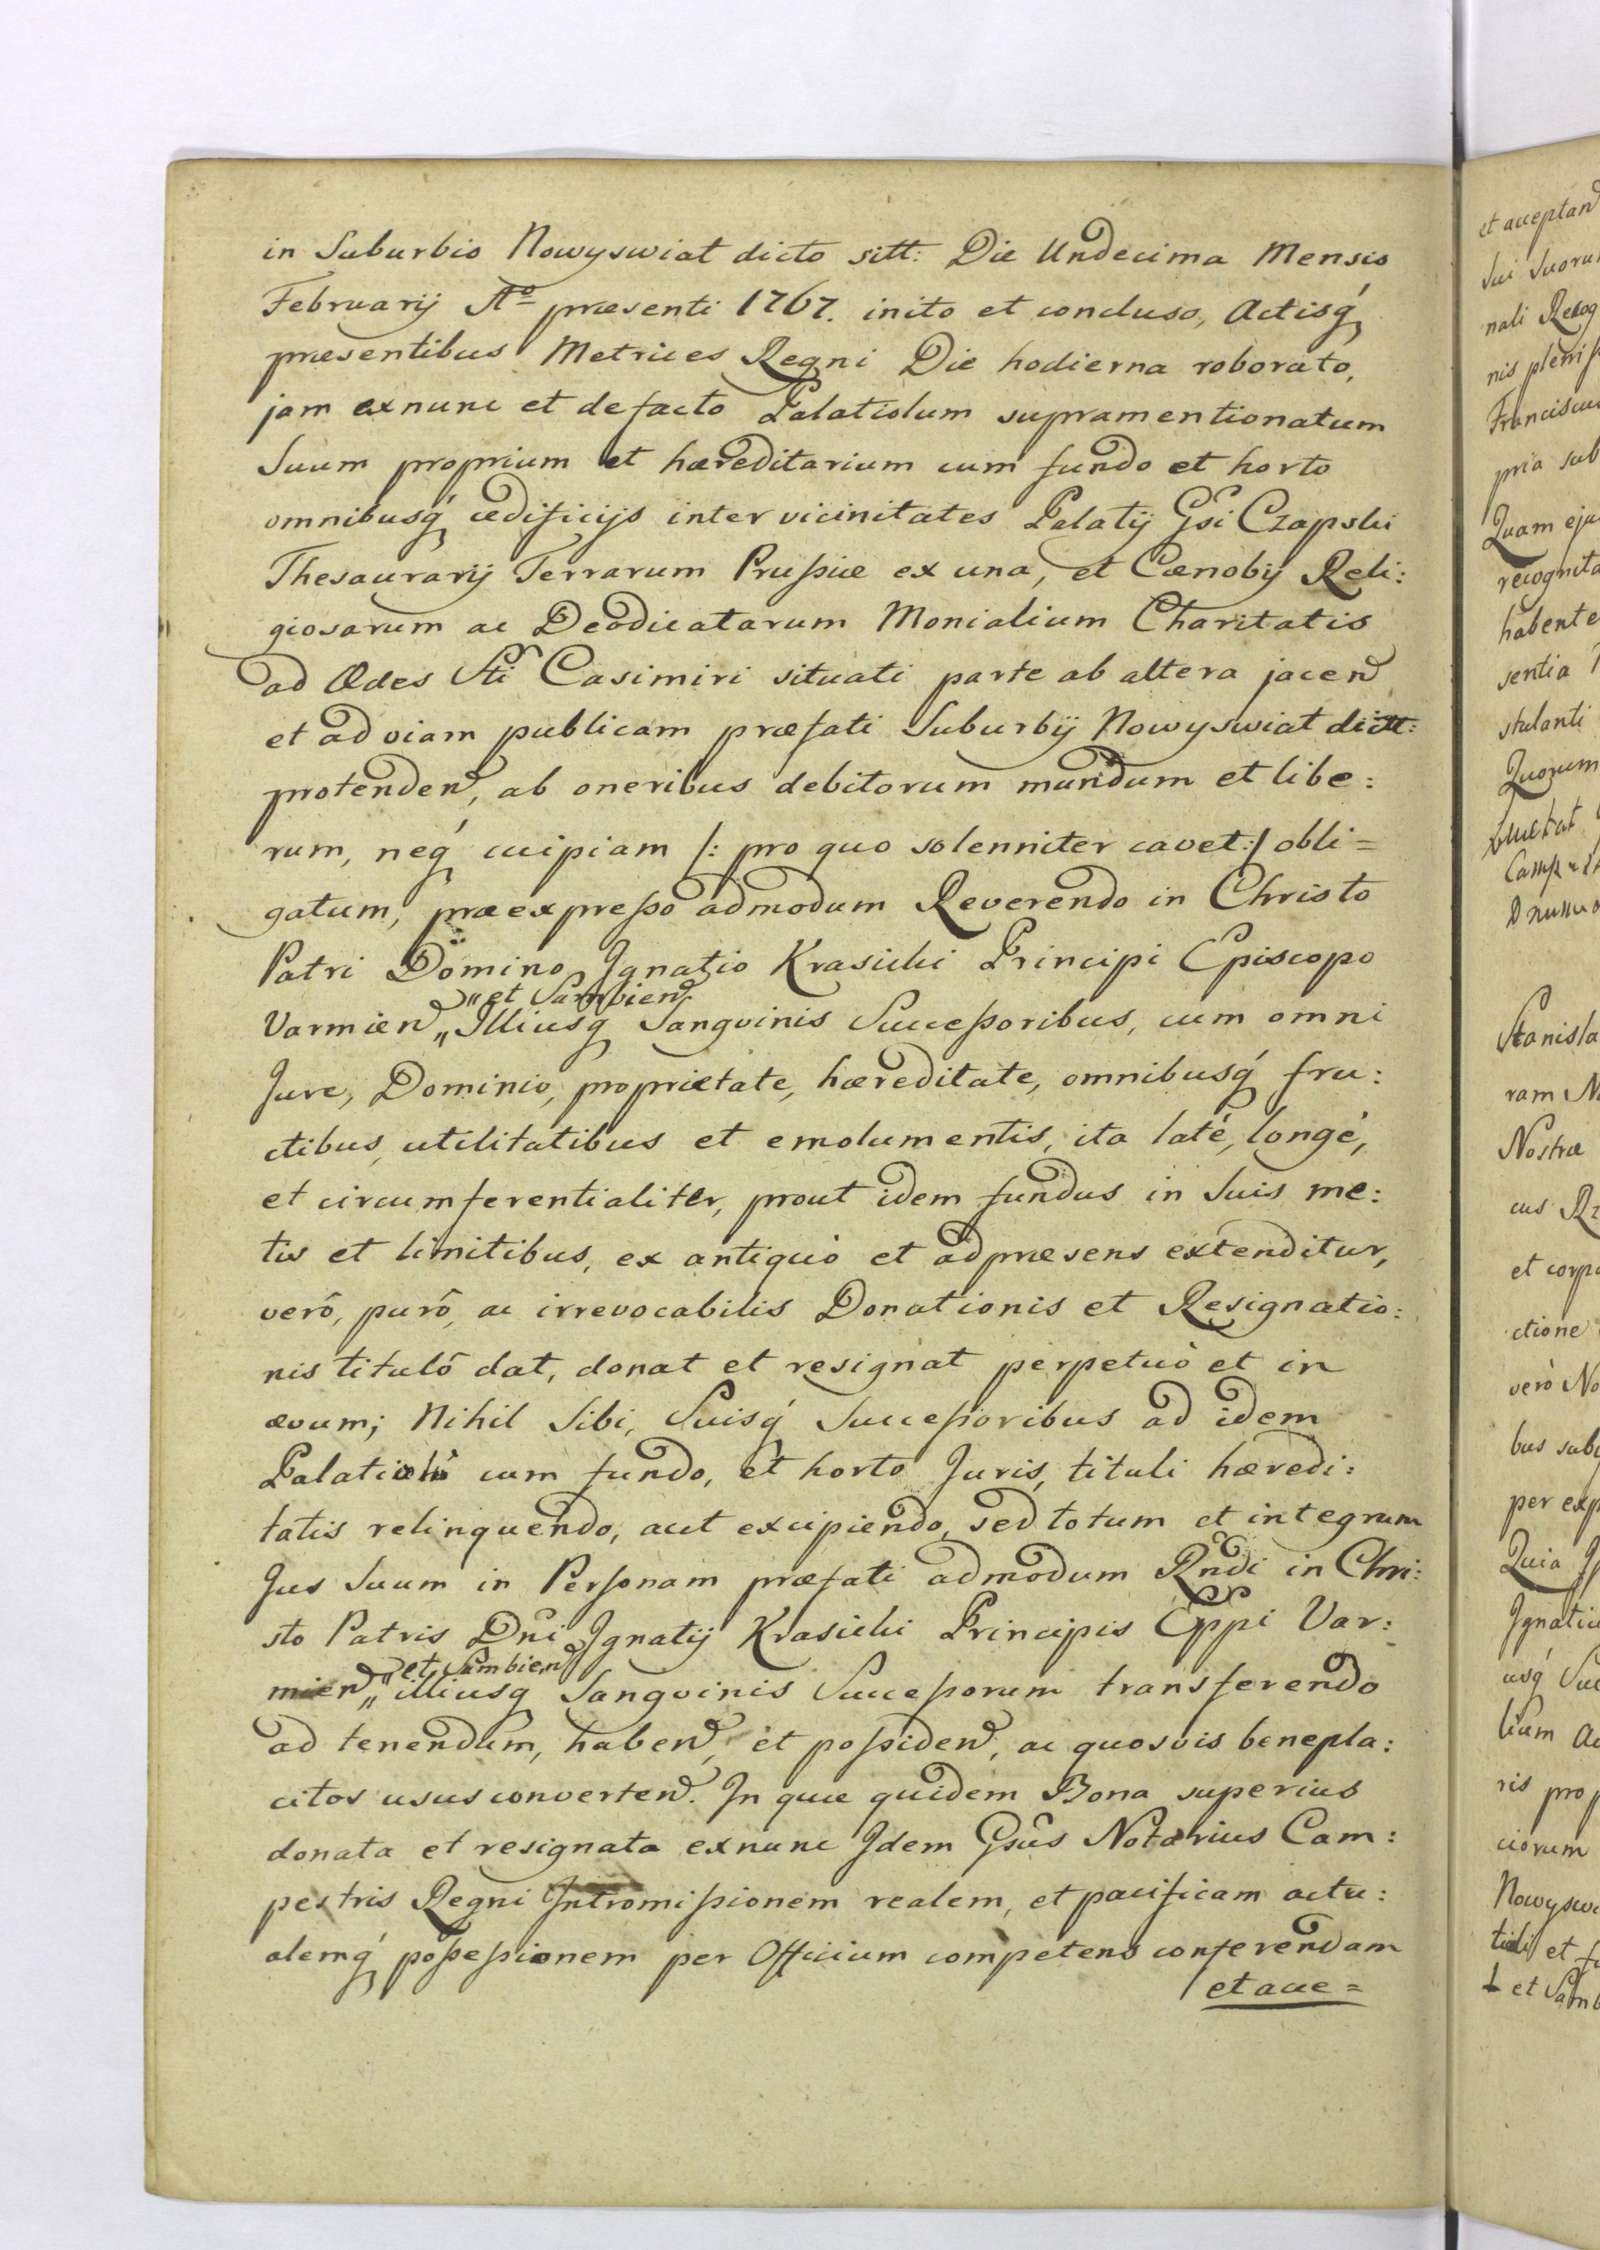 in Suburbio Nowyswiat dicto sitt: Die Undecima Mensis
Februarij Aº præsenti 1767. inito et concluso, Actisq́
præsentibus Metrices Regni Die hodierna roborato,
jam exnunc et defacto Palatiolum supramentionatum
Suum proprium et hæreditarium cum fundo et horto
omnibusq́ ædificijs inter vicinitates Palatij Gsi Czapski
Thesaurarij Terrarum Prussiæ ex una, et Cænobij Reli:
giosarum ac Deodicatarum Monialium Charitatis
ad Ædes Sti Casimiri situati parte ab altera jacen
et ad viam publicam præfati Suburbij Nowyswiat dictt:
protenden, ab oneribus debitorum mundum et libe:
rum, neq́ cuipiam /: pro quo solenniter cavet:/ obli=
gatum, præexpresso admodum Reverendo in Christo
Patri Domino Ignatio Krasicki Principi Episcopo
"et Sambien
Varmien „ Illiusq́ Sangvinis Successoribus, cum omni
Jure, Dominio, proprietate, hæreditate, omnibusq́ fru:
ctibus, utilitatibus et emolumentis, ita laté, longé,
et circumferentialiter, prout idem fundus in Suis me:
tis et limitibus, ex antiquò et adpræsens extenditur,
verô, purô, ac irrevocabilis Donationis et Resignatio:
nis titulô dat, donat et resignat perpetuò et in
ævum; Nihil Sibi, Suisq́ Successoribus ad idem
Palatiolû cum fundo, et horto Juris, tituli hæredi:
tatis relinquendo, aut excipiendo, sed totum et integrum
Jus Suum in Personam præfati admodum Rndi in Chri:
sto Patris Dni Ignatij Krasicki Principis Eppi Var:
"et Sambien
mien „ illiusq́ Sangvinis Successorum transferendo
ad tenendum, haben, et possiden, ac quosvis benepla:
citos usus converten. In quæ quidem Bona superius
donata et resignata exnunc Idem Gsus Notarius Cam:
pestris Regni Intromissionem realem, et pacificam actu:
alemq́ possessionem per Officium competens conferendam
et acce=
et acceptan
Sui Suoru
nali Recog
nis pleniss
Franciscus
pria sub
Quam eju
recognita
habente
sentia
stulanti
Quorum
Stanisla
ram N
Nostræ
cus Rz
et corpo
ctione
verò No
bus sub
per exp
Quia
Ignatiu
usq́ Suc
lium Ac
ris prop
ciorum
Nowyswi
tioli et fu
et Samb